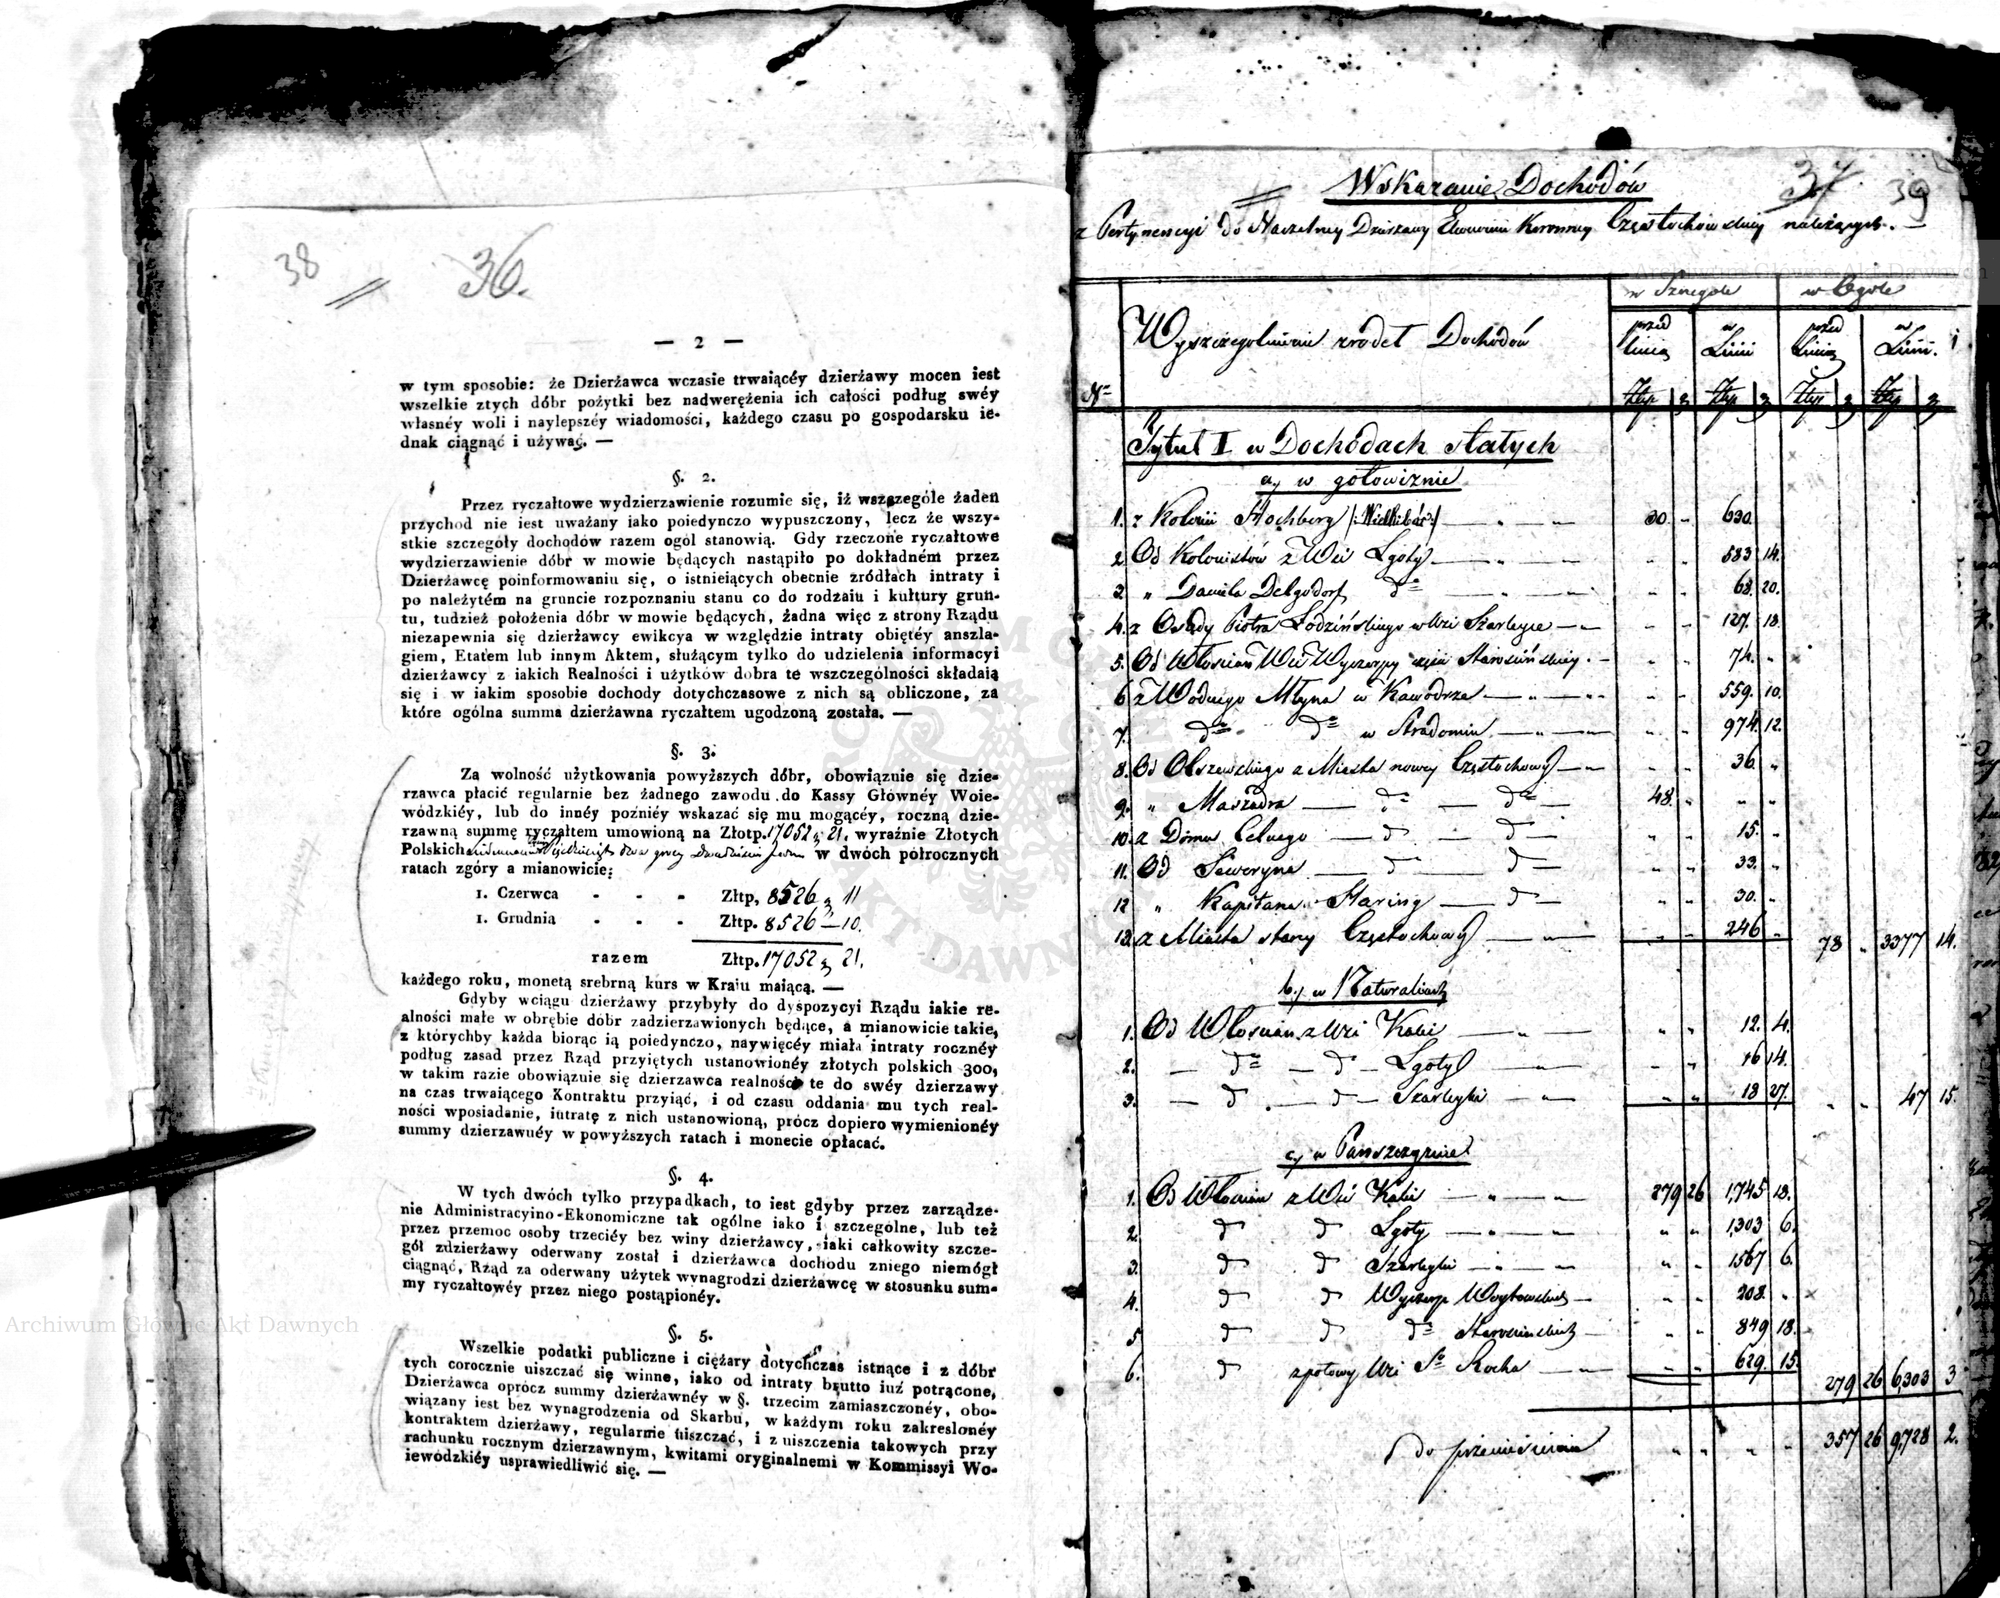 38
36.
— 2 —
w tym sposobie: że Dzierżawca wczasie trwaiącéy dzierżawy mocen iest
wszelkie ztych dóbr pożytki bez nadwerężenia ich całości podług swéy
własnéy woli i naylepszéy wiadomości, każdego czasu po gospodarsku ie-
dnak ciągnąć i używać. —
§. 2.
Przez ryczałtowe wydzierzawienie rozumie się, iż wszczególe żaden
przychod nie iest uważany iako poiedynczo wypuszczony, lecz że wszy-
stkie szczegóły dochodów razem ogół stanowią. Gdy rzeczone ryczałtowe
wydzierzawienie dóbr w mowie będących nastąpiło po dokładném przez
Dzierżawcę poinformowaniu się, o istnieiących obecnie zródłach intraty i
po należytém na gruncie rozpoznaniu stanu co do rodzaiu i kultury grun-
tu, tudzież położenia dóbr w mowie będących, żadna więc z strony Rządu
niezapewnia się dzierżawcy ewikcya w względzie intraty obiętéy anszla-
giem, Etatem lub innym Aktem, służącym tylko do udzielenia informacyi
dzierżawcy z iakich Realności i użytków dobra te wszczególności składaią
się i w iakim sposobie dochody dotychczasowe z nich są obliczone, za
które ogólna summa dzierżawna ryczałtem ugodzoną została. —
§. 3.
Za wolność użytkowania powyższych dóbr, obowiązuie się dzie-
rzawca płacić regularnie bez żadnego zawodu do Kassy Głównéy Woie-
wódzkiéy, lub do innéy pozniéy wskazać się mu mogącéy, roczną dzie-
rzawną summę ryczałtem umowioną na Złotp. 17052 g 21. wyraźnie Złotych
Polskich w dwóch półrocznych
ratach zgóry a mianowicie:
1. Czerwca - - - Złtp. 8526 g 11
1. Grudnia - - - Złtp. 8526 — 10.
razem Złtp. 17052 g 21.
każdego roku, monetą srebrną kurs w Kraiu maiącą. —
Gdyby wciągu dzierżawy przybyły do dyspozycyi Rządu iakie re-
alności małe w obrębie dóbr zadzierzawionych będące, a mianowicie takie,
z którychby każda biorąc ią poiedynczo, naywięcéy miała intraty rocznéy
podług zasad przez Rząd przyiętych ustanowionéy złotych polskich 300,
w takim razie obowiązuie się dzierzawca realności te do swéy dzierzawy
na czas trwaiącego Kontraktu przyiąć, i od czasu oddania mu tych real-
ności wposiadanie, intratę z nich ustanowioną, prócz dopiero wymienionéy
summy dzierzawnéy w powyższych ratach i monecie opłacać.
§. 4.
W tych dwóch tylko przypadkach, to iest gdyby przez zarządze-
nie Administracyino-Ekonomiczne tak ogólne iako i szczególne, lub też
przez przemoc osoby trzeciéy bez winy dzierżawcy, iaki całkowity szcze-
gół zdzierżawy oderwany został i dzierżawca dochodu zniego niemógł
ciągnąć, Rząd za oderwany użytek wynagrodzi dzierżawcę w stosunku sum-
my ryczałtowéy przez niego postąpionéy.
§. 5.
Wszelkie podatki publiczne i ciężary dotychczas istnące i z dóbr
tych corocznie uiszczać się winne, iako od intraty brutto iuż potrącone,
Dzierżawca oprócz summy dzierżawnéy w §. trzecim zamiaszczonéy, obo-
wiązany iest bez wynagrodzenia od Skarbu, w każdym roku zakreslonéy
kontraktem dzierżawy, regularnie uiszczać, i z uiszczenia takowych przy
rachunku rocznym dzierzawnym, kwitami oryginalnemi w Kommissyi Wo-
iewódzkiéy usprawiedliwić się. —
Wskazanie Dochodów
37. 39
z Pertynencyi do Naczelney Dzierzawy Ekonomii Koronney Częstochowskiey należących.
w Szczegole w Ogole
Nro Wyszczegolnienie zrodeł Dochodów przed Linią w Linii przed Linią w Linii.
Złtp g Złtp g Złtp g Złtp g
Tytuł I w Dochodach stałych
a, w gotowiznie
1. z Kolonii Hochberg /: Wielkibór :/ — „ — 30. „ 630.
2. Od Kolonistów z Wsi Lgoty — „ „ 583 14.
3 „ Daniela Delgodorf do — „ „ 68. 20.
4. z Osady Piotra Łodzińskiego w Wsi Szarleyce — „ „ 127. 18.
5. Od Włoscian Wsi Wyczerpy części Starościńskiey. — „ „ 74. „
6 z Wodnego Młyna w Kawodrza — „ „ 559. 10.
7. do do w Stradomiu — „ „ 974. 12.
8. Od Olszewskiego z Miasta nowey Częstochowy — „ „ 36. „
9. „ Maszadra — do — do — 48. „ „ „
10. z Domu Celnego — d — d — „ „ 15. „
11. Od Seweryna — d — d — „ „ 33. „
12 „ Kapitana Haring — d — „ „ 30. „
13. z Miasta starey Częstochowy — „ „ 246 „ 78 „ 3377 14.
b, w Naturaliach
1. Od Włoscian z Wsi Kalei — „ — „ „ 12. 4.
2. — do — d — Lgoty — „ 16 14.
3. — d — d — Szarleyki — „ „ 18 27. „ „ 47 15.
c, w Pańszczyznie
1. Od Włoscian z Wsi Kalei — „ — 279 26 1,745 18.
2. d d Lgoty — „ — „ „ 1,303 6.
3. d d Szarleyki — „ — „ „ 1567 6.
4. d d Wyczerp Woytowskich — „ „ 208. „
5 d d do Starościnskich — „ „ 849 18.
6. d z połowy Wsi So Rocha — „ „ 629. 15. 279 26 6,303 3
do przeniesienia „ „ „ „ 357 26 9,728 2.
Archiwum Główne Akt Dawnych